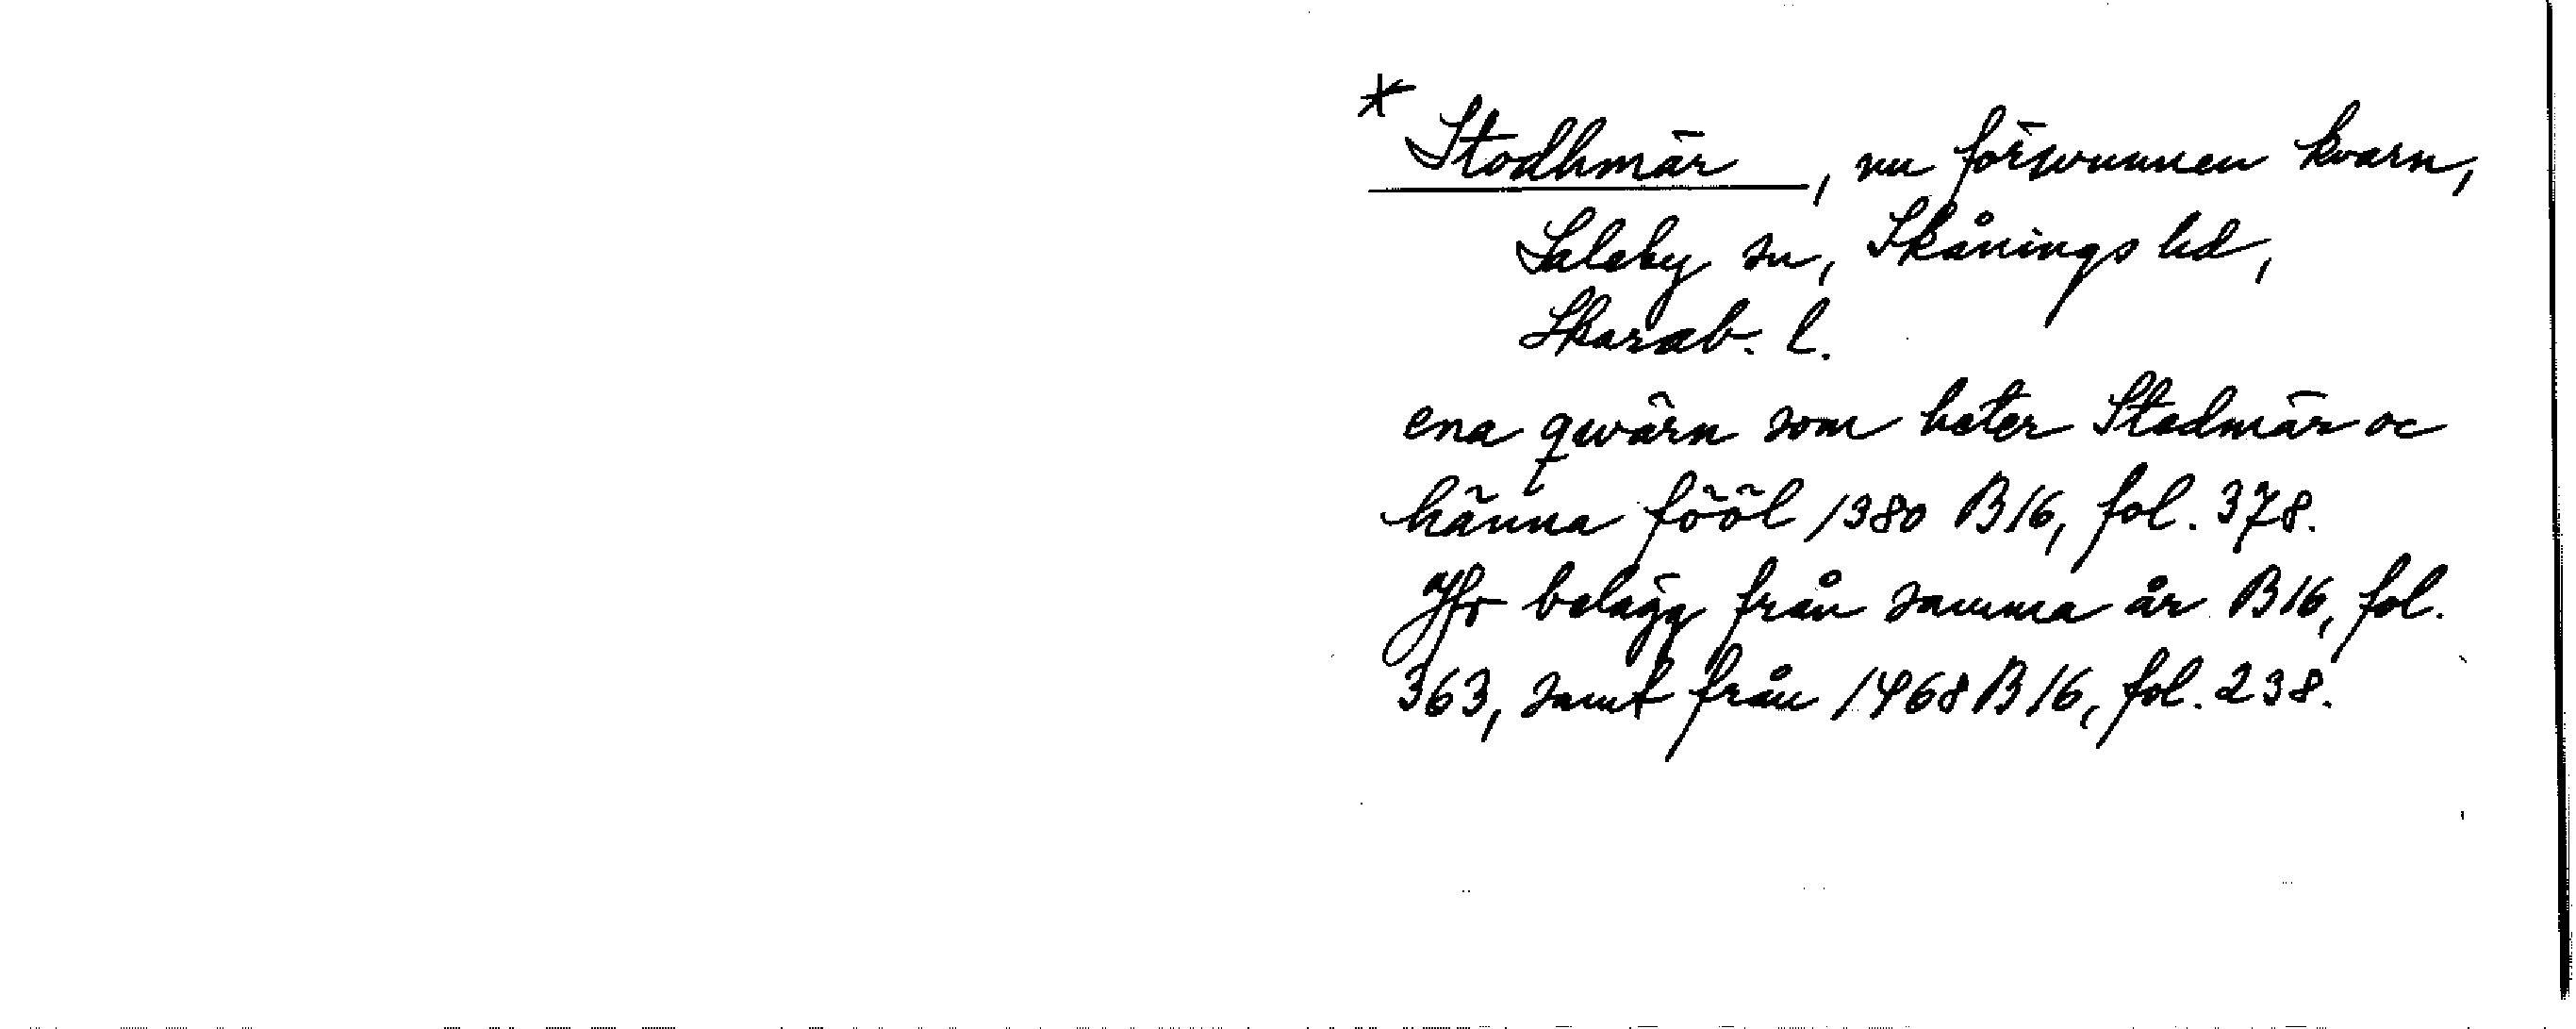 * Stodhmär, nu försvunnen kvarn,
Saleby sn, Skånings hd,
Skarab. l.
ena qwärn som heter Stodmär oc
hänna fööl 1380 B16, fol. 378.
Jfr belägg från samma år B16, fol.
363, samt från 1468 B16, fol. 238.